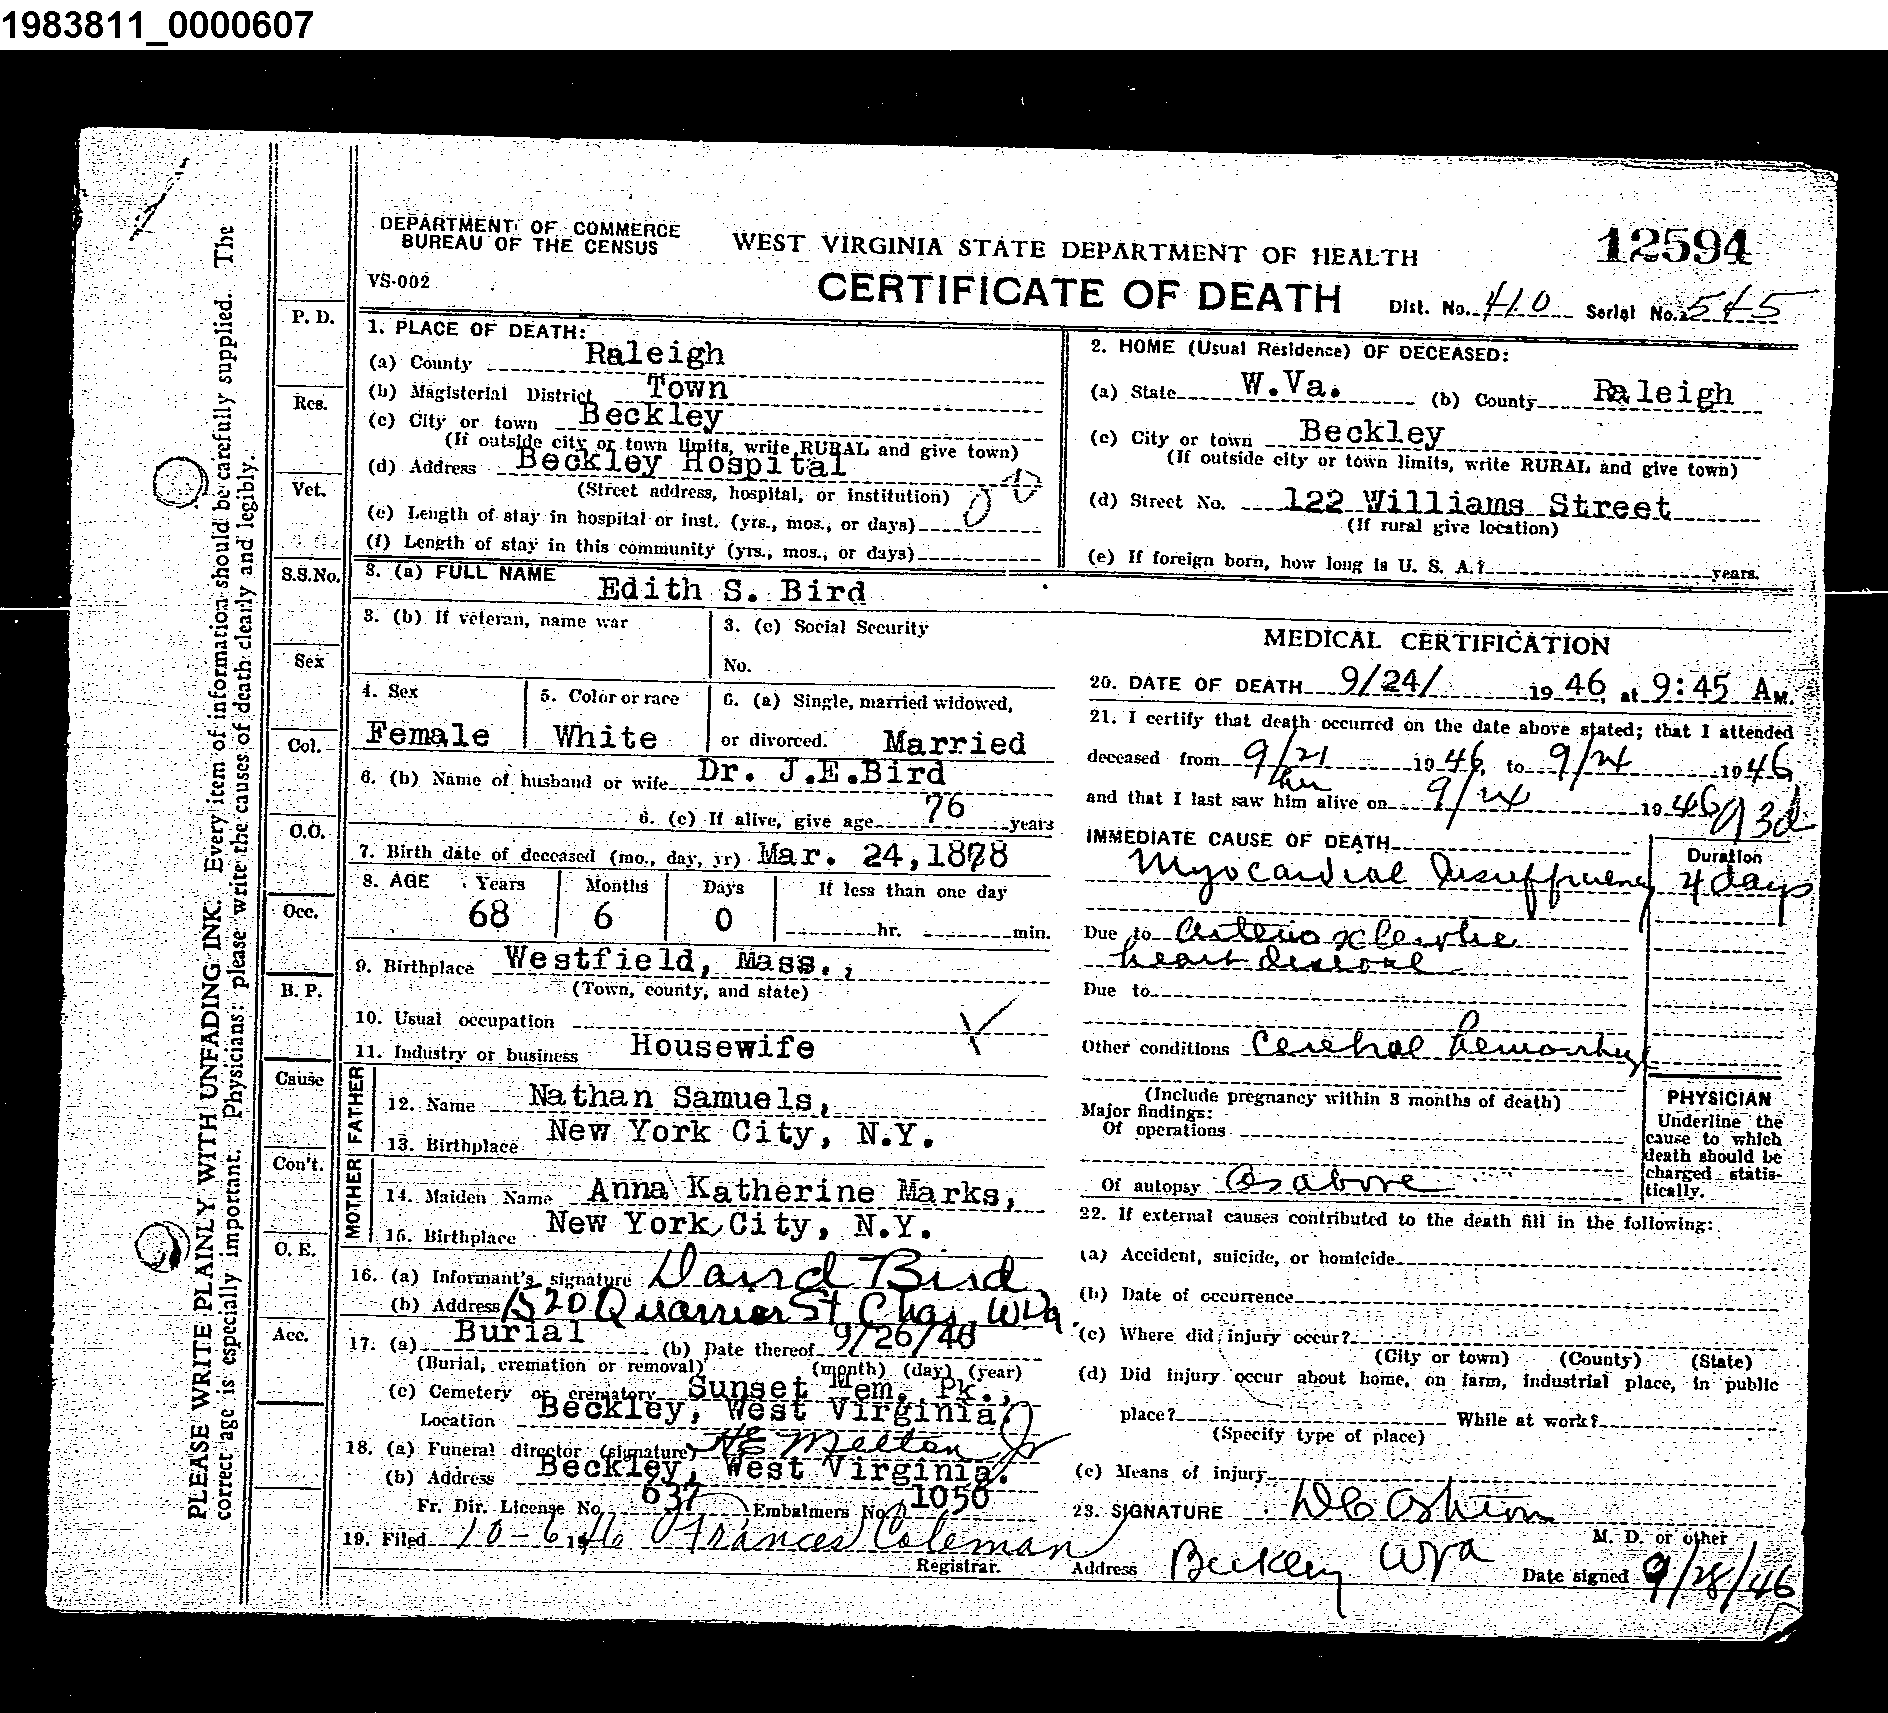 1983811_0000607
DEPARTMENT OF COMMERCE
BUREAU OF THE CENSUS
WEST VIRGINIA STATE DEPARTMENT OF HEALTH
12594
VS-002
CERTIFICATE OF DEATH
Dist. No. 410 Serial No. 545
PLEASE WRITE PLAINLY WITH UNFADING INK. Every item of information should be carefully supplied. The
correct age is especially important. Physicians: please write the causes of death clearly and legibly.
P. D.
Res.
Vet.
S.S.No.
Sex
Col.
O.O.
Occ.
B. P.
Cause
Con't.
O. E.
Acc.
1. PLACE OF DEATH:
(a) County Raleigh
(b) Magisterial District Town
(c) City or town Beckley
(If outside city or town limits, write RURAL and give town)
(d) Address Beckley Hospital
(Street address, hospital, or institution)
(e) Length of stay in hospital or inst. (yrs., mos., or days)
(f) Length of stay in this community (yrs., mos., or days)
2. HOME (Usual Residence) OF DECEASED:
(a) State W.Va. (b) County Raleigh
(c) City or town Beckley
(If outside city or town limits, write RURAL and give town)
(d) Street No. 122 Williams Street
(If rural give location)
(e) If foreign born, how long is U. S. A.? years.
3. (a) FULL NAME Edith S. Bird
3. (b) If veteran, name war
3. (c) Social Security
No.
4. Sex
Female
5. Color or race
White
6. (a) Single, married widowed,
or divorced. Married
6. (b) Name of husband or wife Dr. J.E.Bird
6. (c) If alive, give age 76 years
7. Birth date of deceased (mo., day, yr) Mar. 24,1878
8. AGE Years Months Days If less than one day
68 6 0 hr. min.
9. Birthplace Westfield, Mass.,
(Town, county, and state)
10. Usual occupation
11. Industry or business Housewife
FATHER
12. Name Nathan Samuels,
13. Birthplace New York City, N.Y.
MOTHER
14. Maiden Name Anna Katherine Marks,
15. Birthplace New York City, N.Y.
16. (a) Informant's signature David Bird
(b) Address 1520 Quarrier St Chas, WVa.
17. (a) Burial (b) Date thereof 9/26/46
(Burial, cremation or removal) (month) (day) (year)
(c) Cemetery or crematory Sunset Mem. Pk.,
Location Beckley, West Virginia
18. (a) Funeral director (signature) Melton Jr
(b) Address Beckley, West Virginia.
Fr. Dir. License No. 637 Embalmers No. 1050
19. Filed 10-6 1946 Frances Coleman
Registrar.
MEDICAL CERTIFICATION
20. DATE OF DEATH 9/24/ 1946 at 9:45 A M.
21. I certify that death occurred on the date above stated; that I attended
deceased from 9/21 1946, to 9/24 1946
her
and that I last saw him alive on 9/24 1946
93d
IMMEDIATE CAUSE OF DEATH
Duration
Myocardial Insufficiency 4 days
Due to Arteriosclerotic
heart disease
Due to
Other conditions Cerebral hemorrhage
(Include pregnancy within 3 months of death)
Major findings:
Of operations
Of autopsy As above
PHYSICIAN
Underline the
cause to which
death should be
charged statis-
tically.
22. If external causes contributed to the death fill in the following:
(a) Accident, suicide, or homicide
(b) Date of occurrence
(c) Where did injury occur?
(City or town) (County) (State)
(d) Did injury occur about home, on farm, industrial place, in public
place? While at work?
(Specify type of place)
(e) Means of injury
23. SIGNATURE
M. D. or other
Address Beckley WVa Date signed 9/28/46